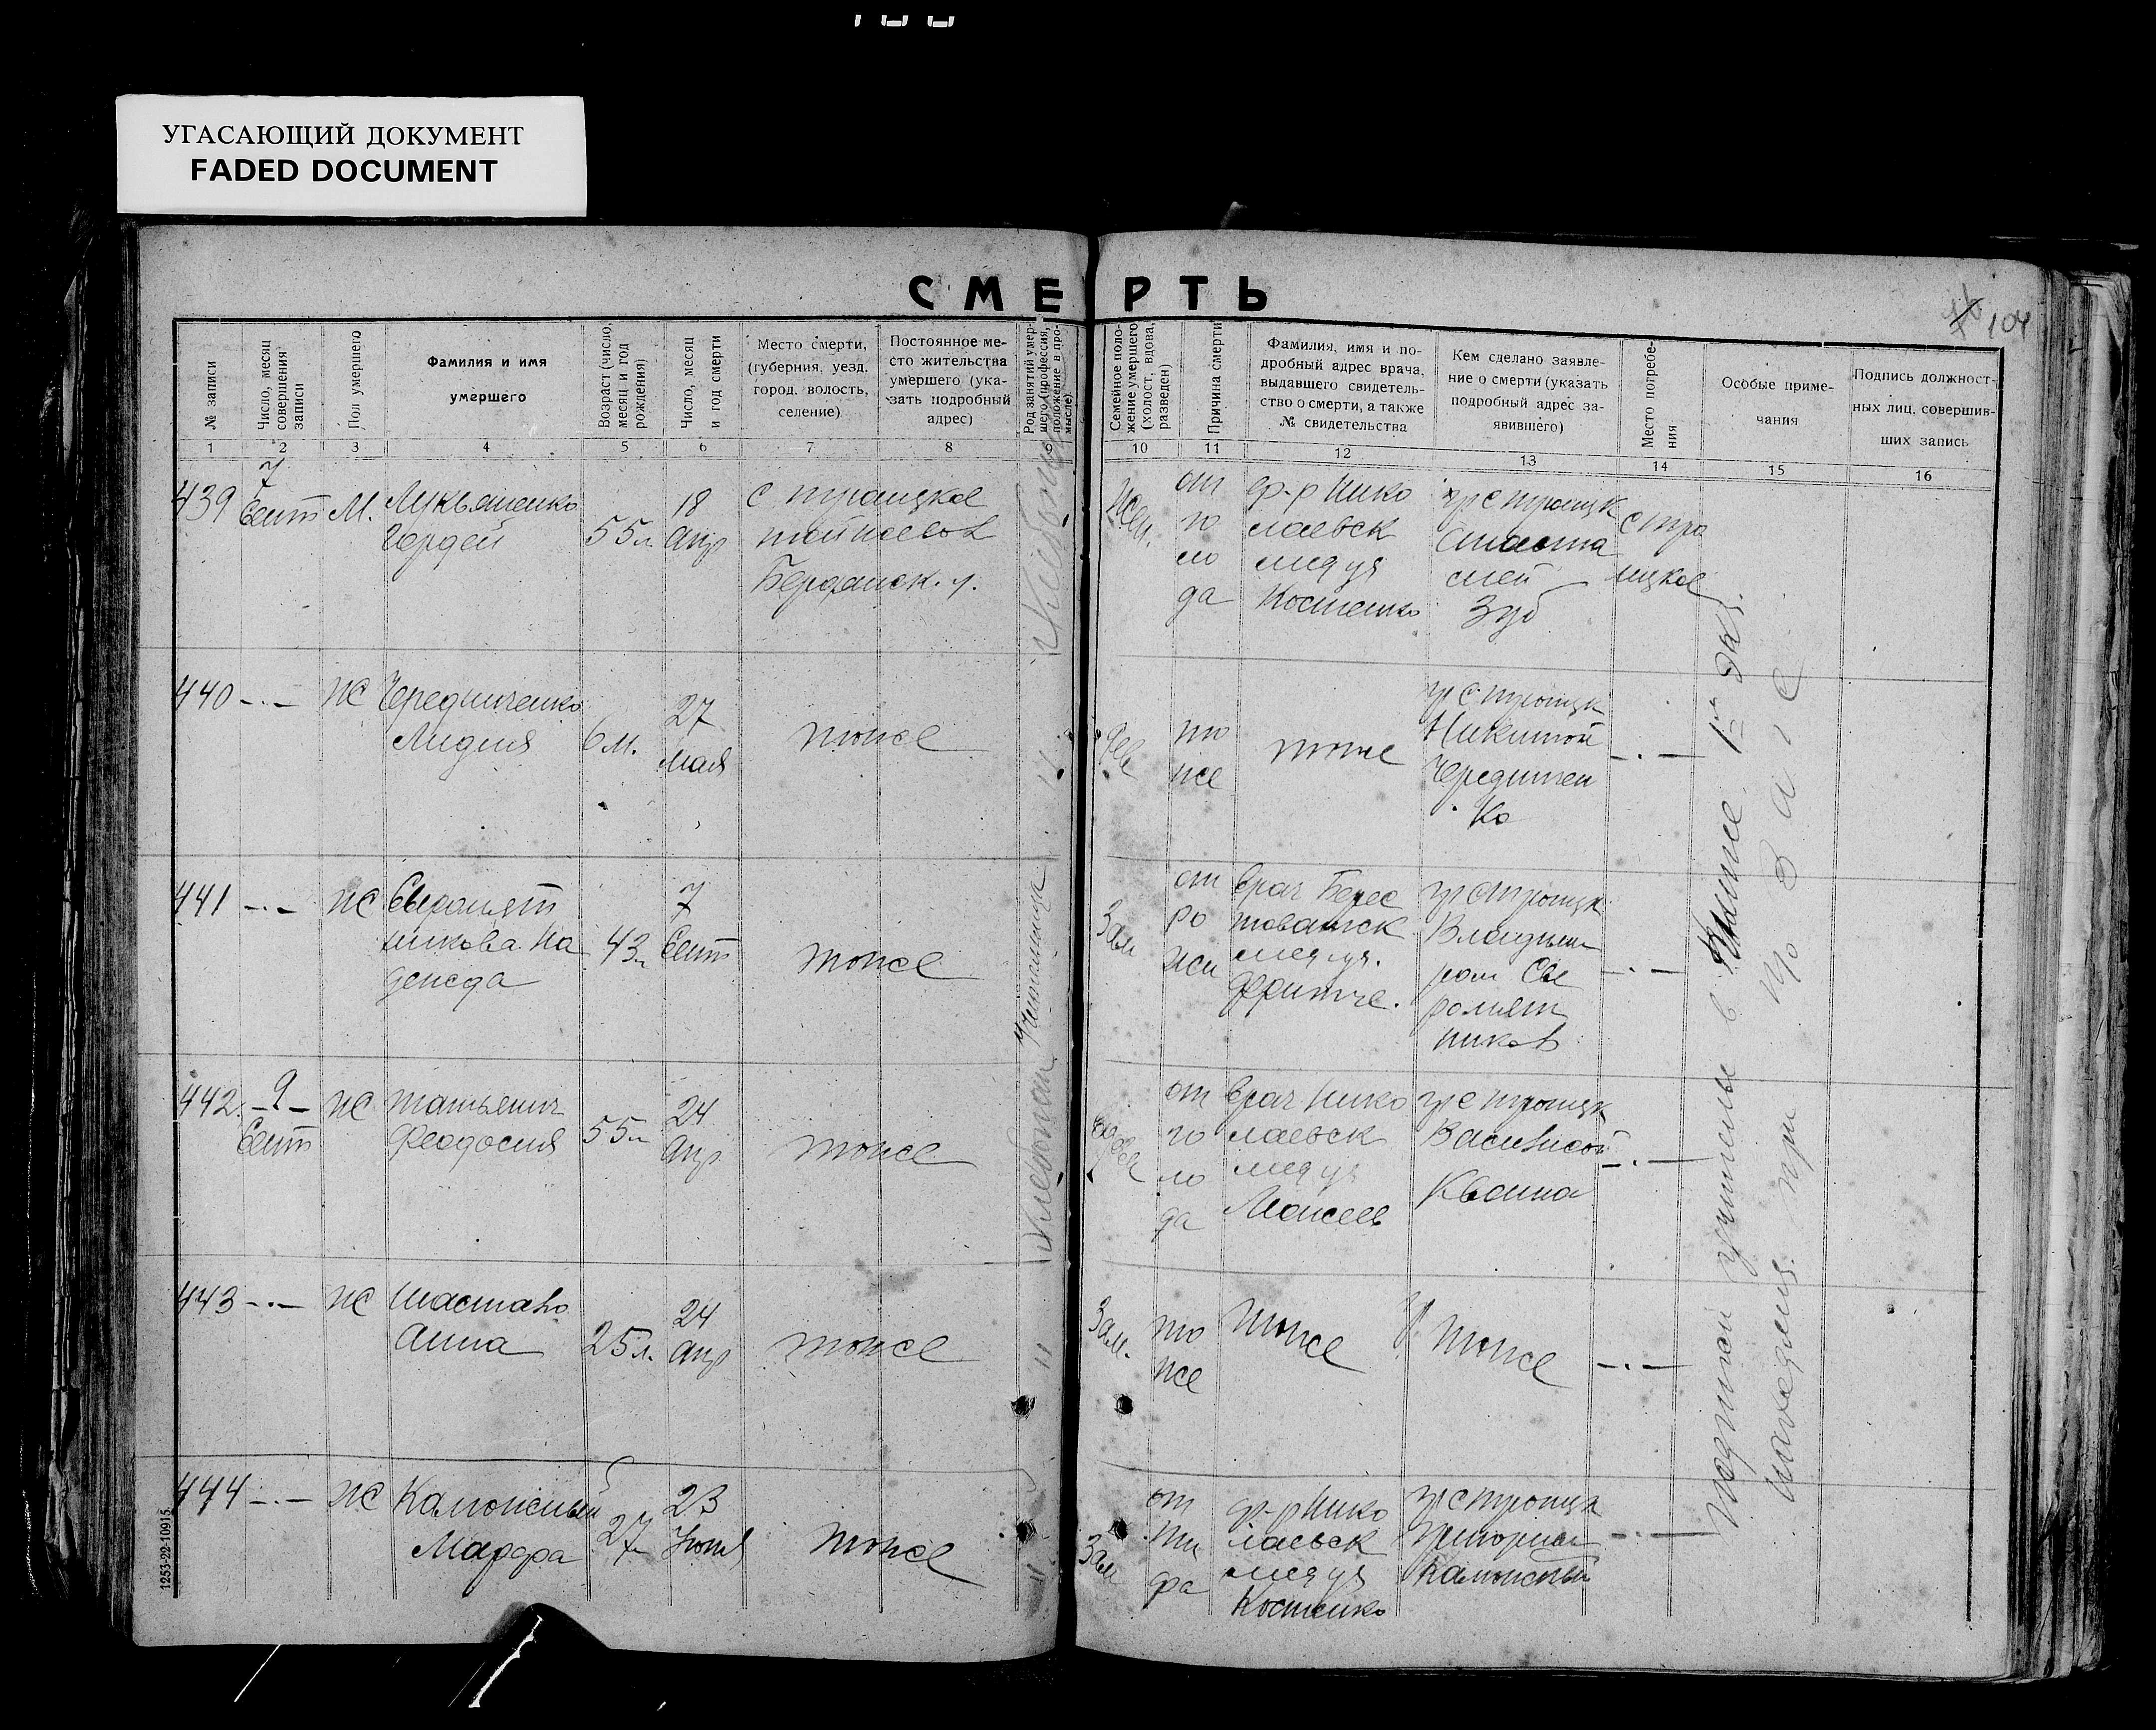 УГАСАЮЩИЙ ДОКУМЕНТ
FADED DOCUMENT
СМЕРТЬ
104
№ записи
Число, месяц
совершения
записи
Пол умершего
Фамилия и имя
умершего
Возраст (число,
месяц и год
рождения)
Число, месяц
и год смерти
Место смерти,
(губерния, уезд,
город, волость,
селение)
Постоянное ме-
сто жительства
умершего (ука-
зать подробный
адрес)
Род занятий умер-
шего (профессия,
положение в про-
мысле)
Семейное поло-
жение умершего
(холост, вдова,
разведен)
Причина смерти
Фамилия, имя и по-
дробный адрес врача,
выдавшего свидетель-
ство о смерти, а также
№ свидетельства
Кем сделано заявле-
ние о смерти (указать
подробный адрес за-
явившего)
Место погребе-
ния
Особые приме-
чания
Подпись должност-
ных лиц, совершив-
ших запись
1 2 3 4 5 6 7 8 9 10 11 12 13 14 15 16
439
7
Сент
М.
Лукьяненко
Гордей
55л
18
Апр
с троицкое
Бердянск. у.
Хлебопаш
Жен.
от
го
ло
да
д-р Нико
лаевск
мед уч
Костенко
гр с троицк
Анаста
сией
Зуб
с тро
ицкое
440 -"-
Ж
Чередниченко
Лидия
6 м.
27
мая
тоже
"
Дев
то
же
тоже
гр с троицк
Никитой
Чередничен
ко
-"-
441 -"-
Ж
Сыромят
никова На
дежда
43л
7
Сент
тоже
Учительница
Зам
от
ро
жи
врач Берес
товатск
мед уч.
гр с троицк
Владими
ром Сы
ромят
ников
-"-
442.
9
Сент
Ж
Татьянич
Феодосия
55л
24
Апр
тоже
Хлебопаш
от
го
ло
да
врач Нико
лаевск
мед уч
Моисеев
гр с троицк
Василисой
Квашa
-"-
443 -"-
Ж
Анна
25л.
24
Апр
тоже
"
Зам.
то
же
тоже
тоже
-"-
444 -"-
Ж
Каможный
Марфа
27л
23
Июня
тоже
"
Зам
от
ти
фа
д-р Нико
лаевск
мед уч
Костенко
гр с троицк
Григорием
Каможный
-"-
в книге 1й экз.
при
1253-22-10915